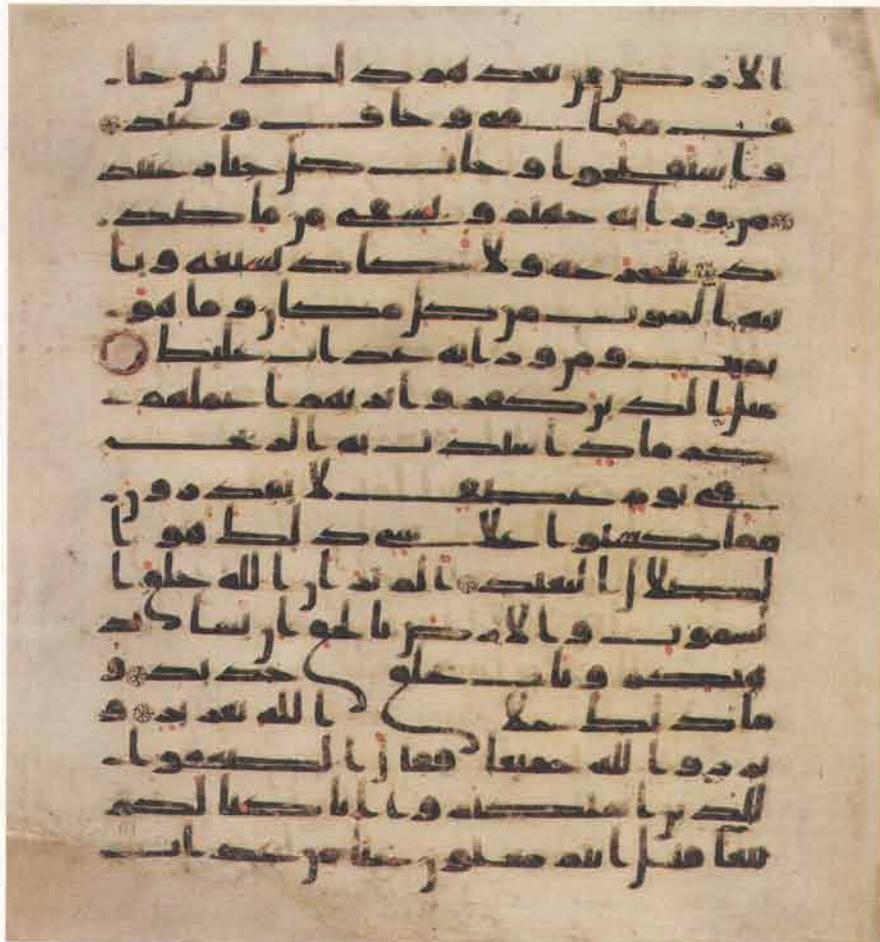 الارض من بعدهم ذلك لمن خا
ف مقامي وخاف وعيد
واستفتحوا وخاب كل جبار عنيد
من ورايه جهنم ويسقى من ما صد
يد يتجرعه ولا يكاد يسيغه ويا
تيه الموت من كل مكان وما هو
بميت ومن ورايه عذاب غليظ
مثل الذين كفروا بربهم اعملهم
كرماد اشتدت به الريح
في يوم عاصف لا يقدرون
مما كسبوا على شي ذلك هو ا
لضلال البعيد الم تر ان الله خلق ا
لسموت والارض بالحق ان يشا يذ
هبكم ويات بخلق جديد و
ما ذلك على الله بعزيز و
برزوا لله جميعا فقال الضعفوا
للذين استكبروا انا كنا لكم
تبعا فهل انتم مغنون عنا من عذاب